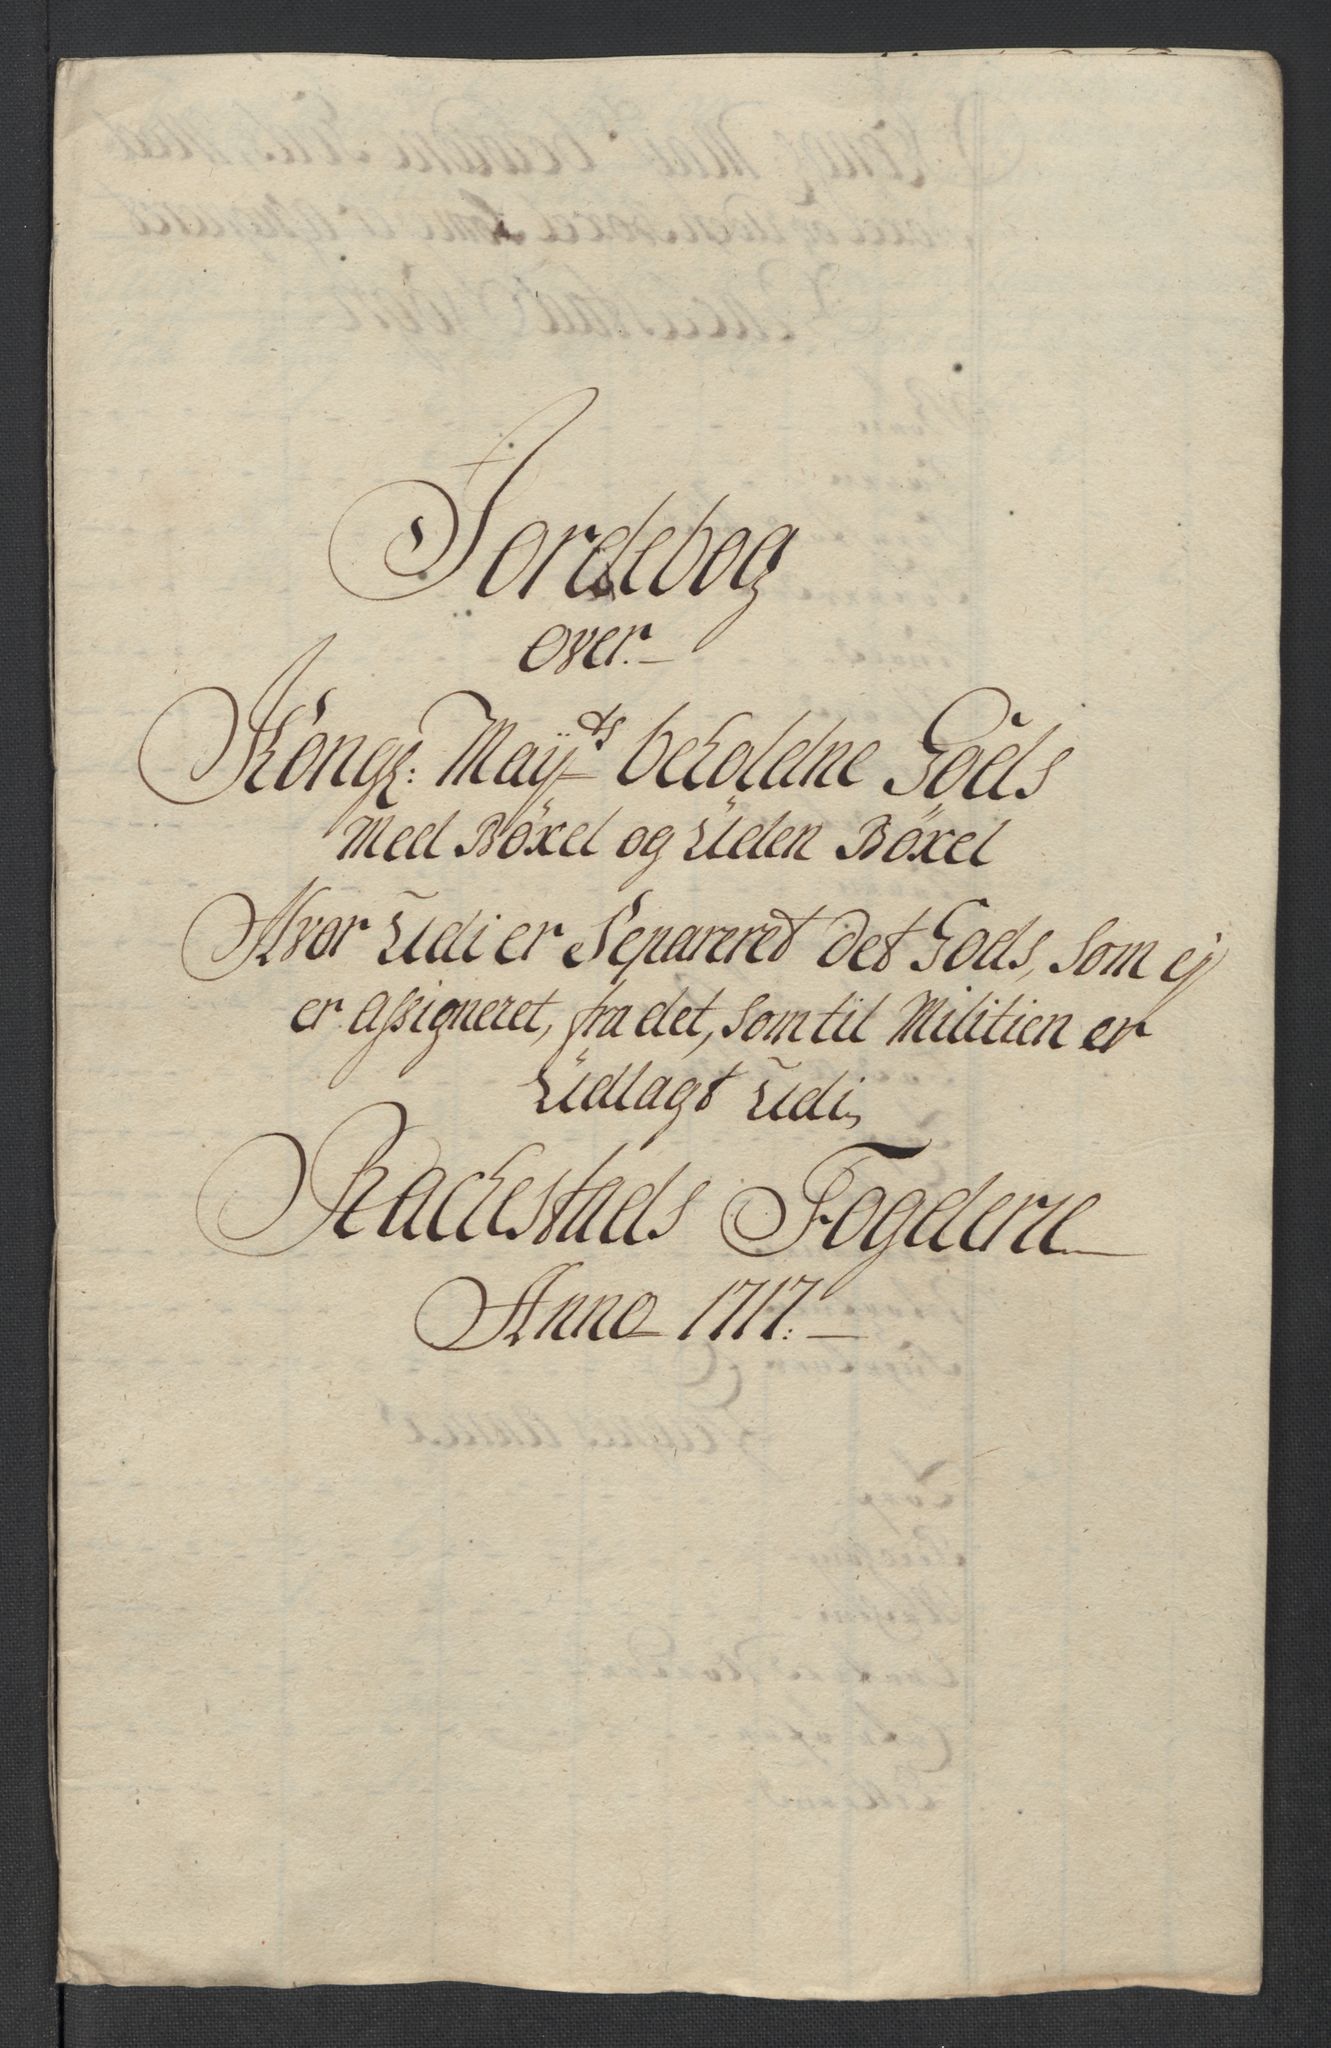 Jordebog
over
Kongl: Mayts beholdne Goeds
Med Böxel og Uden Böxel
Hvor Udi er Separeret det Gods, som ej
er assigneret, fra det, som til Militien er
Udlagt Udi
Rachestads Fogderie
Anno 1717.